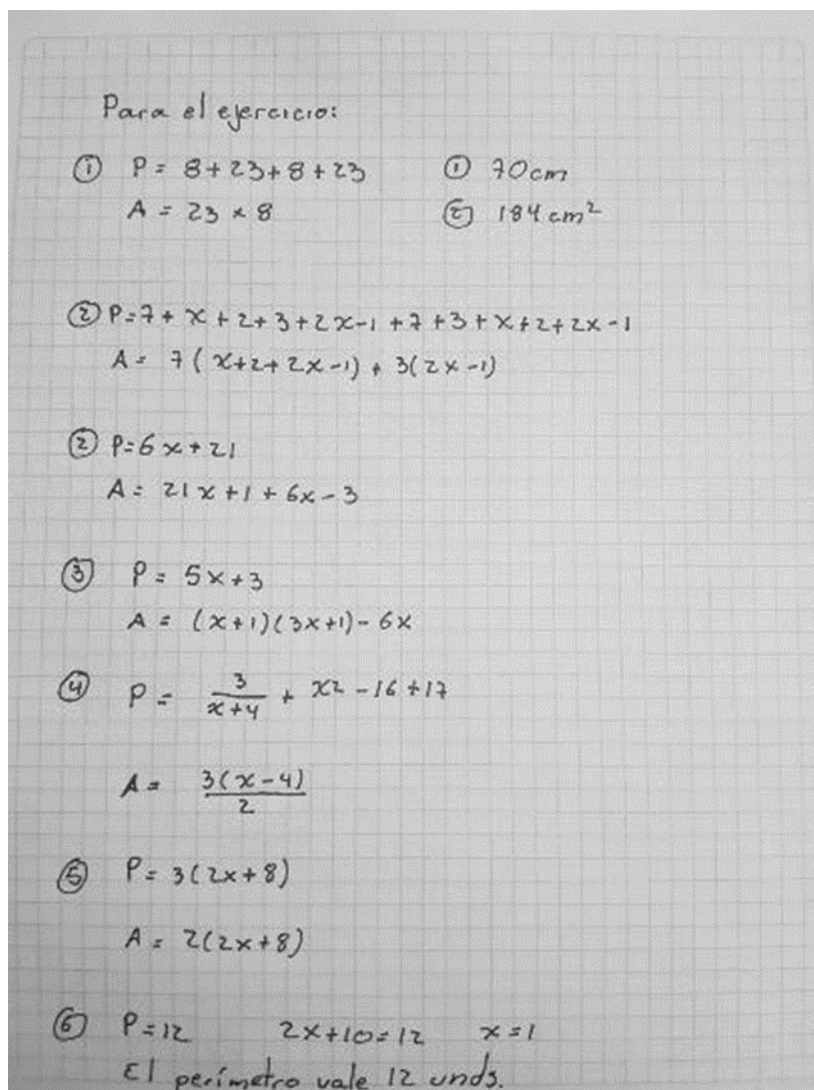 Para el ejercicio:
① P = 8+23+8+23 ① 70cm
A = 23 × 8 ② 184 cm²
② P=7+x+2+3+2x-1+7+3+x+2+2x-1
A = 7(x+2+2x-1)+3(2x-1)
② P=6x+21
A = 21x+1+6x-3
③ P = 5x+3
A = (x+1)(3x+1)-6x
④ P = 3/(x+4) + x2 -16+17
A = 3(x-4)/2
⑤ P = 3(2x+8)
A = 2(2x+8)
⑥ P=12 2x+10=12 x=1
El perímetro vale 12 unds.